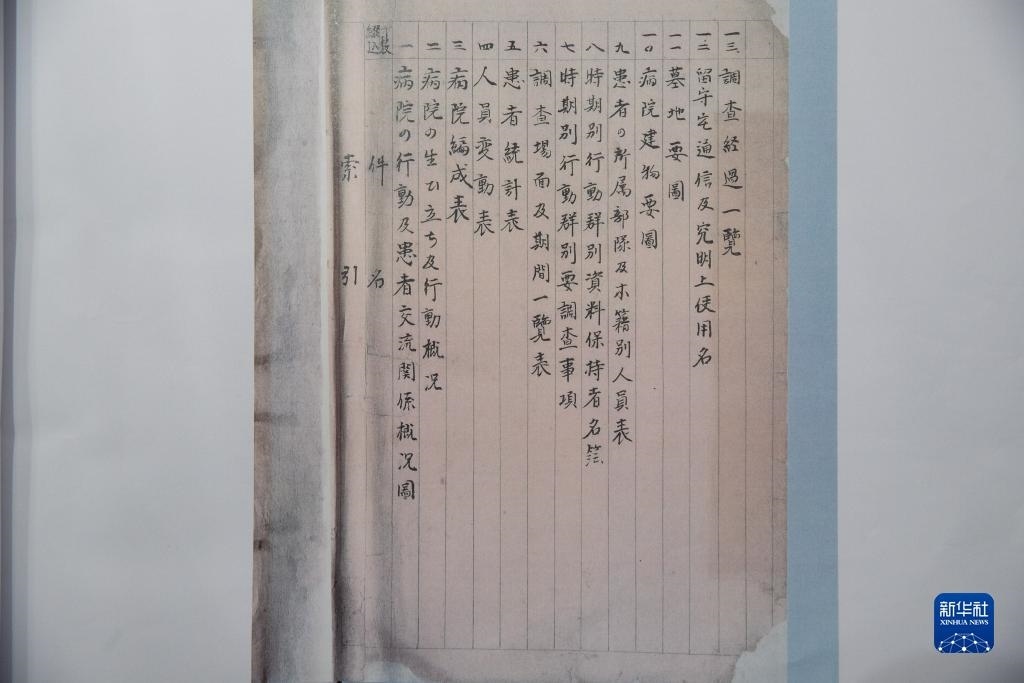 索引
件名
一 病院の行動及患者交流関係概況圖
二 病院の生ひ立ち及行動概況
三 病院編成表
四 人員変動表
五 患者統計表
六 調査場面及期間一覽表
七 時期別行動群別要調査事項
八 時期別行動群別資料保持者名簿
九 患者の所属部隊及本籍別人員表
一〇 病院建物要圖
一一 墓地要圖
一二 留守宅通信及究明上使用名
一三 調査経過一覽
新华社
XINHUA NEWS